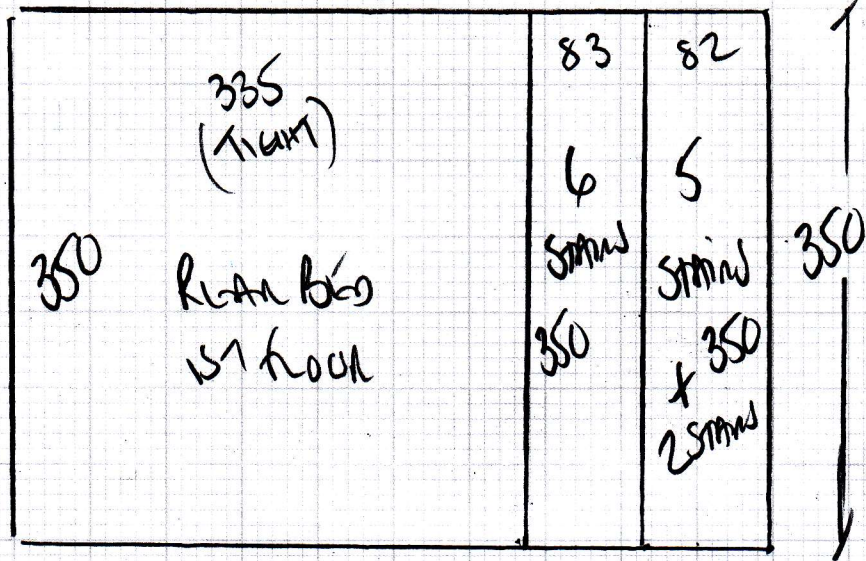 335
(TIGHT)
350
REAR BED
1ST FLOOR
83
6
STAIRS
350
82
5
STAIRS
350
+
2 STAIRS
350